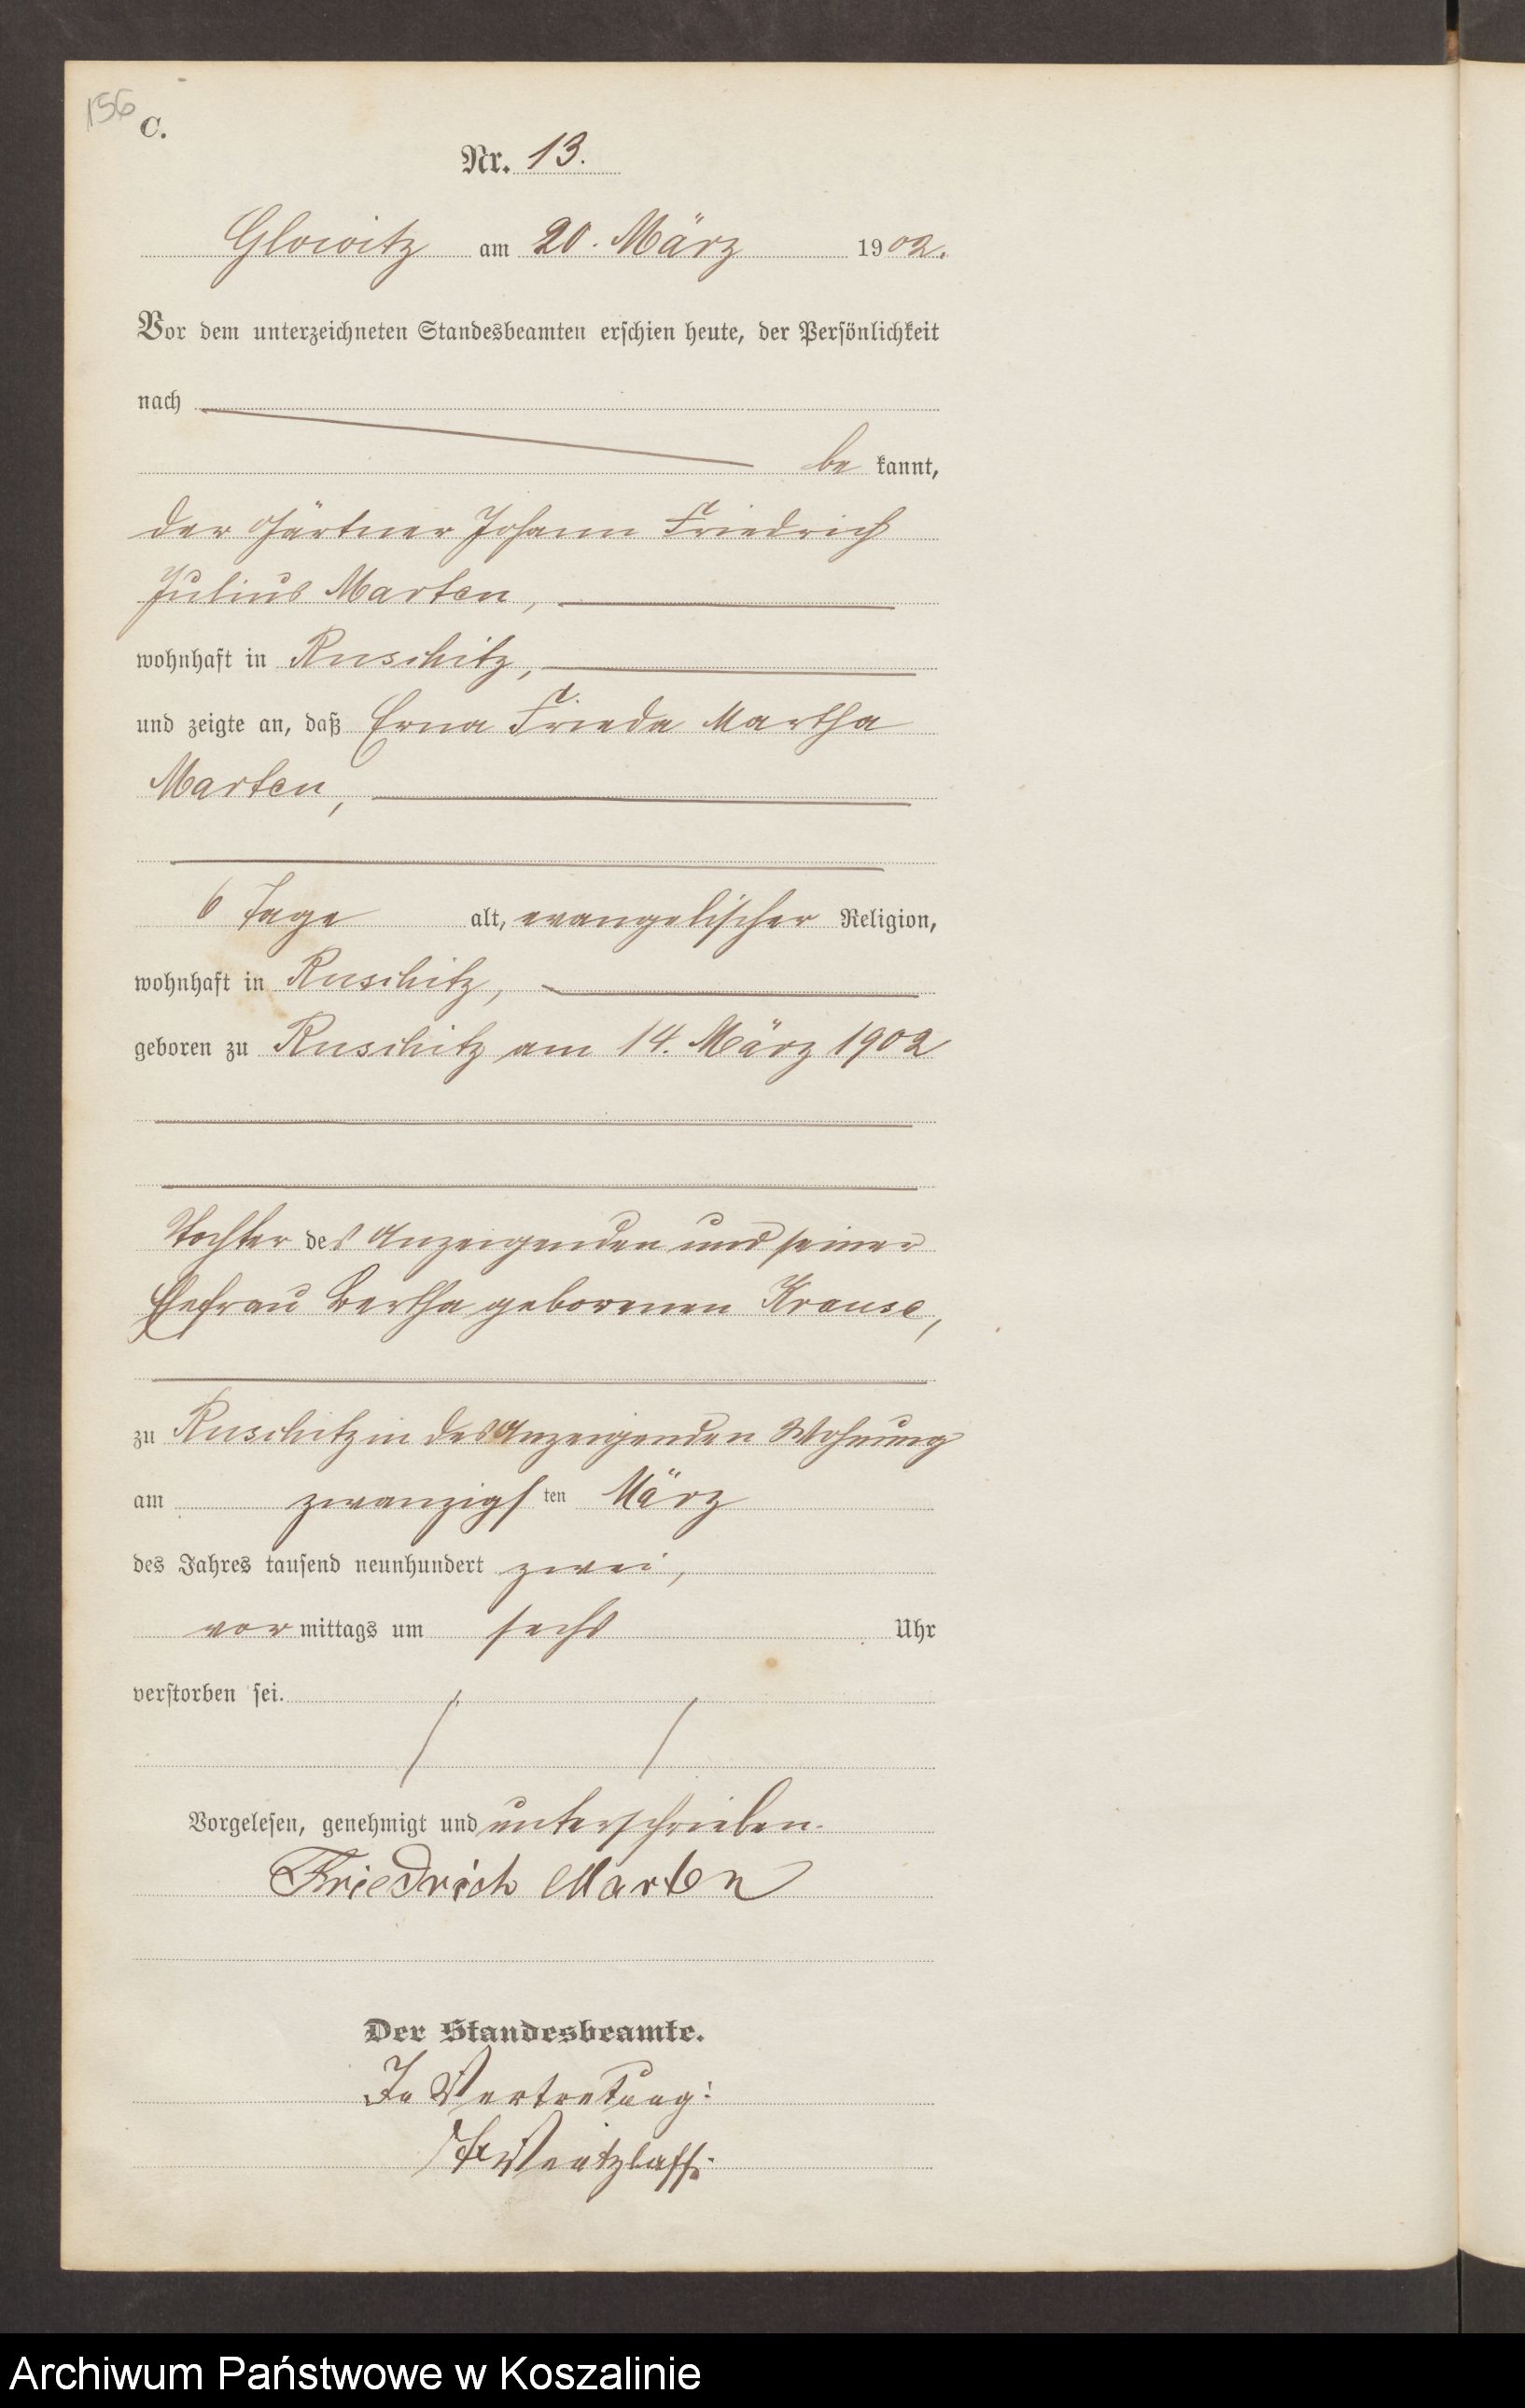 156
C.
Nr. 13.
Glowitz am 20. März 1902.
Vor dem unterzeichneten Standesbeamten erschien heute, der Persönlichkeit
nach
be kannt,
der Gärtner Johann Friedrich
Julius Marten,
wohnhaft in Ruschitz,
und zeigte an, daß Erna Frieda Martha
Marten,
6 Tage alt, evangelischer Religion,
wohnhaft in Ruschitz,
geboren zu Ruschitz am 14. März 1902
Tochter des Anzeigenden und seiner
Ehefrau Bertha geborenen Krause,
zu Ruschitz in des Anzeigenden Wohnung
am zwanzigsten März
des Jahres tausend neunhundert zwei,
vor mittags um sechs Uhr
verstorben sei.
Vorgelesen, genehmigt und unterschrieben.
Friedrich Marten
Der Standesbeamte.
In Vertretung:
Wentzlaff.
Archiwum Państwowe w Koszalinie